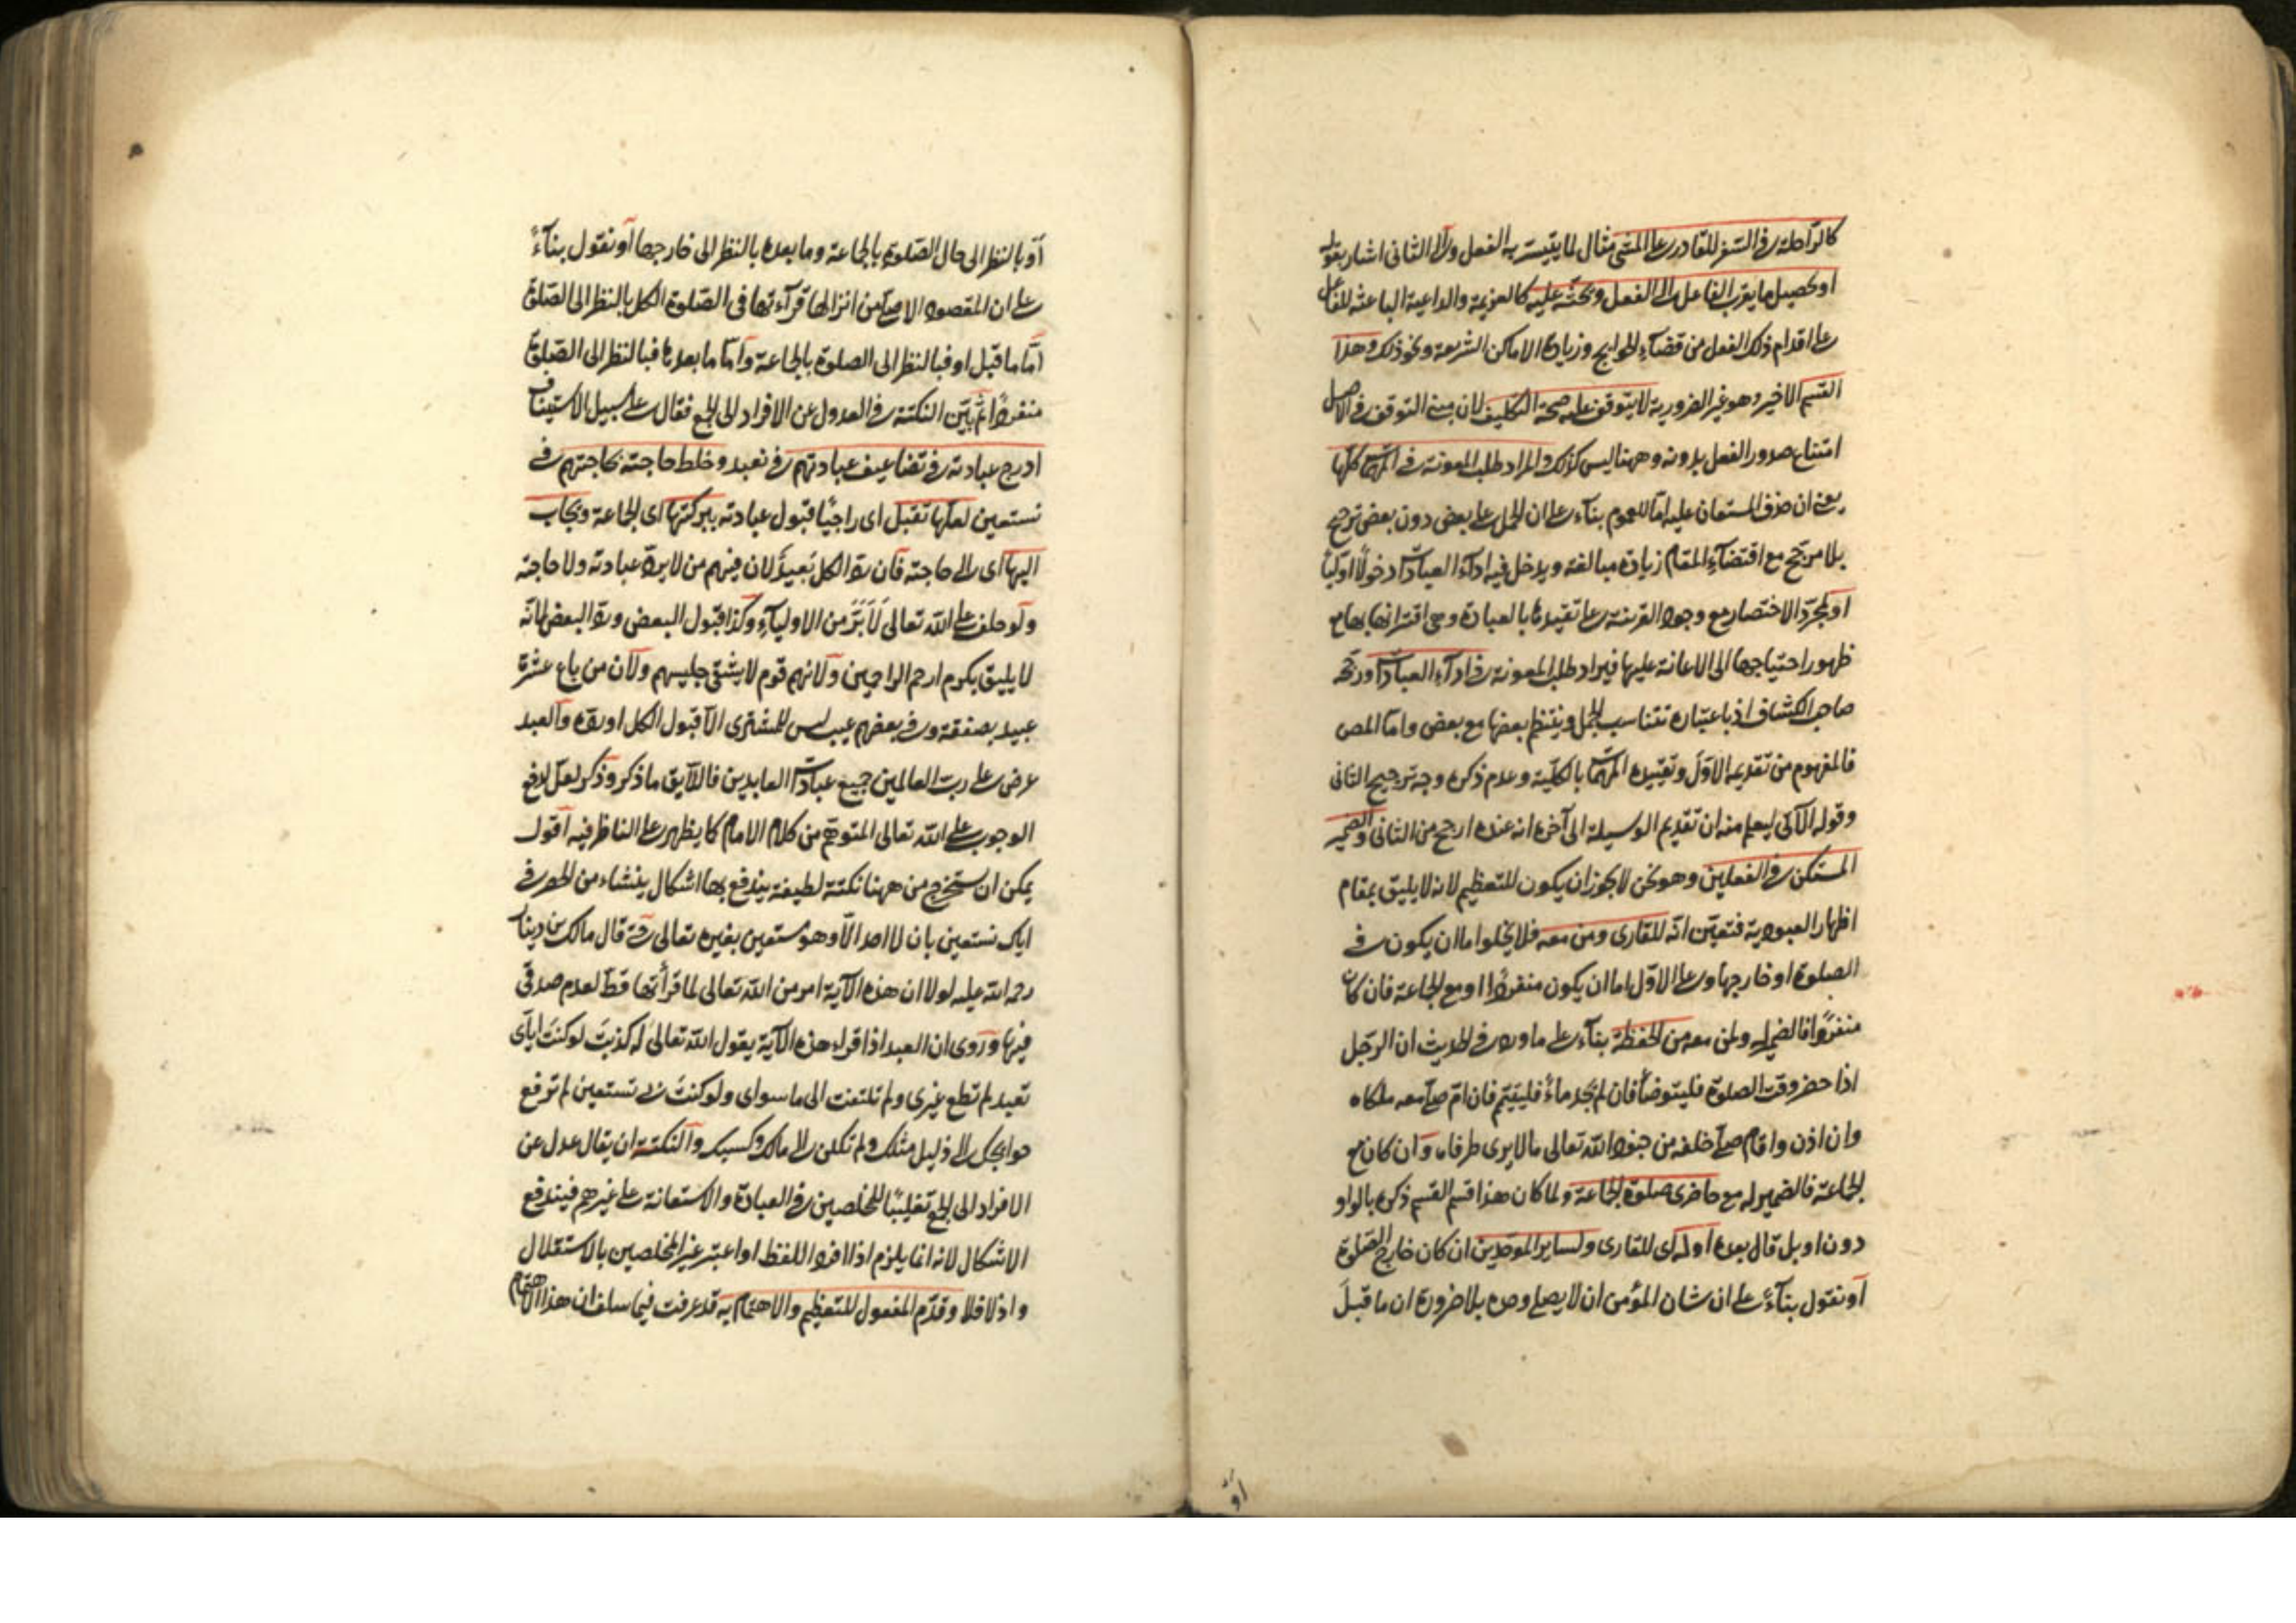 كالراحلة في السفر للقادر على المشى مثال لما يتيسر به الفعل والى الثانى اشار بقوله
او تحصيل ما يقرب الفاعل الى الفعل ويحثه عليه كالعزيمة والداعية الباعثة للفاعل
على اقدام ذلك الفعل من قضاء الحوايج وزيادة الاماكن الشريعة ونحو ذلك وهذا
القسم الاخير وهو غير الضرورية لا يتوقف عليه صحة التكليف لان مبنى التوقف في الاصل
امتناع صدور الفعل بدونه وههنا ليس كذلك والمراد طلب المعونة في المهمات كلها
يعنى ان حذف المستعان عليه اما للعموم بناء على ان الحمل على بعض دون بعض ترجيح
بلا مرجح مع اقتضاء المقام زيادة مبالغة ويدخل فيه اداء العبادات دخولا اوليا
او لمجرد الاختصار مع وجود القرينة على تقييدها بالعبادة وهى اقترانها بها مع
ظهور احتياجها الى الاعانة عليها فيراد طلب المعونة في اداء العبادات ورجحه
صاحب الكشاف اذ باعتباره تتناسب الجمل وينتظم بعضها مع بعض واما المص
فالمفهوم من تقديمه الاول وتقييده المهمات بالكلية وعدم ذكره وجه ترجيح الثانى
وقوله الآتى ليعلم منه ان تقديم الوسيلة الى آخره انه عنده ارجح من الثانى والضمير
المستكن في الفعلين وهو نحن لا يجوز ان يكون للتعظيم لانه لا يليق بمقام
اظهار العبودية فتعين انه للقارى ومن معه فلا يخلوا اما ان يكون في
الصلوة او خارجها وعلى الاول اما ان يكون منفردا او مع الجماعة فان كان
منفردا فالضمير له ولمن معه من الحفظة بناء على ما ورد في الحديث ان الرجل
اذا حضر وقت الصلوة فليتوضأ فان لم يجد ماء فليتيمم فان ام صلى معه ملكاه
وان اذن واقام صلى خلفه من جنود الله تعالى ما لا يرى طرفاه وان كان مع
الجماعة فالضمير له مع حاضرى صلوة الجماعة ولما كان هذا قسم القسم ذكره بالواو
دون او بل قال بعده او له اى للقارى ولساير الموحدين ان كان خارج الصلوة
او نقول بناء على ان شان المؤمن ان لا يصلى وحده بلا ضرورة ان ما قبل
او
او بالنظر الى حال الصلوة بالجماعة وما بعده بالنظر الى خارجها او نقول بناء
على ان المقصود الاصلى من انزالها قرآءتها فى الصلوة الكل بالنظر الى الصلوة
اما ما قبل او فبالنظر الى الصلوة بالجماعة واما ما بعدها فبالنظر الى الصلوة
منفردا ثم بين النكتة في العدول عن الافراد الى الجمع فقال على سبيل الاستيناف
ادرج عبادته في تضاعيف عبادتهم في نعبد وخلط حاجته بحاجتهم في
نستعين لعلها تقبل اى راجيا قبول عبادته ببركتها اى الجماعة ويجاب
اليها اى الى حاجته فان رد الكل بعيد لان فيهم من لا يرد عبادته ولا حاجته
ولو حلف على الله تعالى لأبره من الاولياء وكذا قبول البعض ورد البعض لانه
لا يليق بكرم ارحم الراحمين ولانهم قوم لا يشقى جليسهم ولان من باع عشرة
عبيد بصفقة وفي بعضهم عيب ليس للمشترى الا قبول الكل او رده والعبد
عرض على رب العالمين جميع عبادات العابدين فاللايق ما ذكر وذكر لعل لدفع
الوجوب على الله تعالى المتوهم من كلام الامام كما يظهر على الناظر فيه اقول
يمكن ان يستخرج من ههنا نكتة لطيفة يندفع بها اشكال ينشاء من الحصر في
اياك نستعين بان لا احد الا وهو مستعين بغيره تعالى حتى قال مالك بن دينار
رحمه الله عليه لولا ان هذه الآية امر من الله تعالى لما قرأتها قط لعدم صدقى
فيها وروى ان العبد اذا قراء هذه الآية يقول الله تعالى له كذبت لو كنت اياى
تعبد لم تطع غيرى ولم تلتفت الى ما سواى ولو كنت بى تستعين لم ترفع
حوايجك الى ذليل مثلك ولم تكن الى مالك وكسبك والنكتة ان يقال عدل عن
الافراد الى الجمع تغليبا للمخلصين في العبادة والاستعانة على غيرهم فيندفع
الاشكال لانه انما يلزم اذا افرد اللفظ او اعتبر غير المخلصين بالاستقلال
واذ لا فلا وقدم المفعول للتعظيم والاهتمام به قد عرفت فيما سلف ان هذا الاهتمام